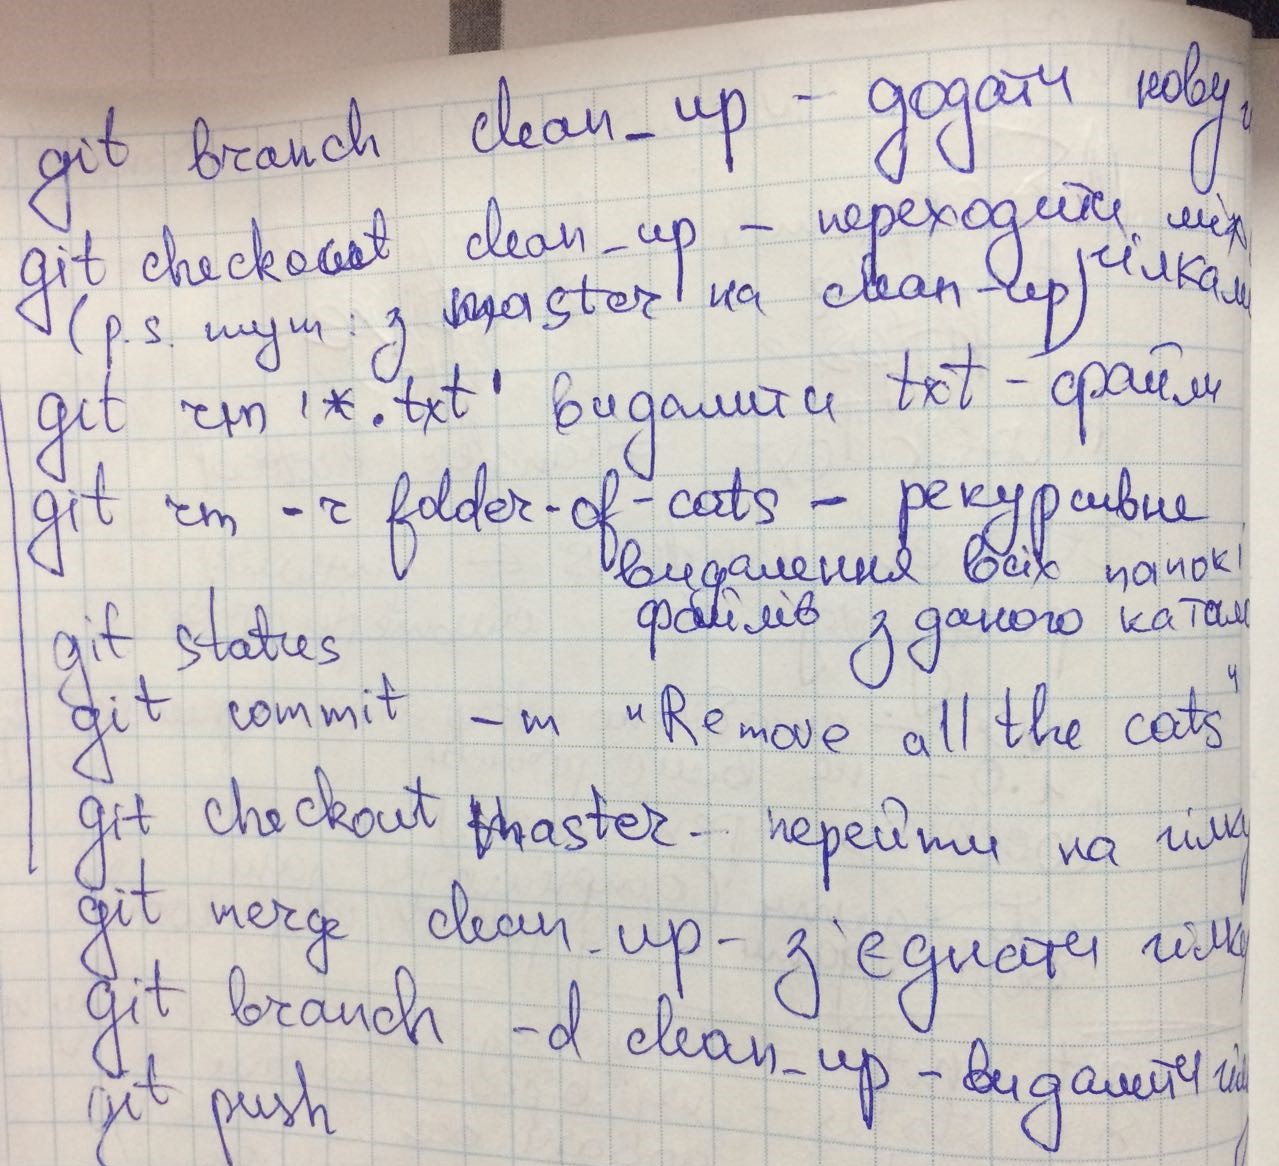 git branch clean_up - додати нову г
git checkout clean_up - переходити між
гілками
(p.s. тут: з master на clean-up)
git rm '*.txt' видалити txt - файли
git rm -r folder-of-cats - рекурсивне
видалення всіх папок і
файлів з даного катал
git status
git commit -m "Remove all the cats"
git checkout master - перейти на гілку
git merge clean_up - з'єднати гілку
git branch -d clean_up - видалити гіл
git push